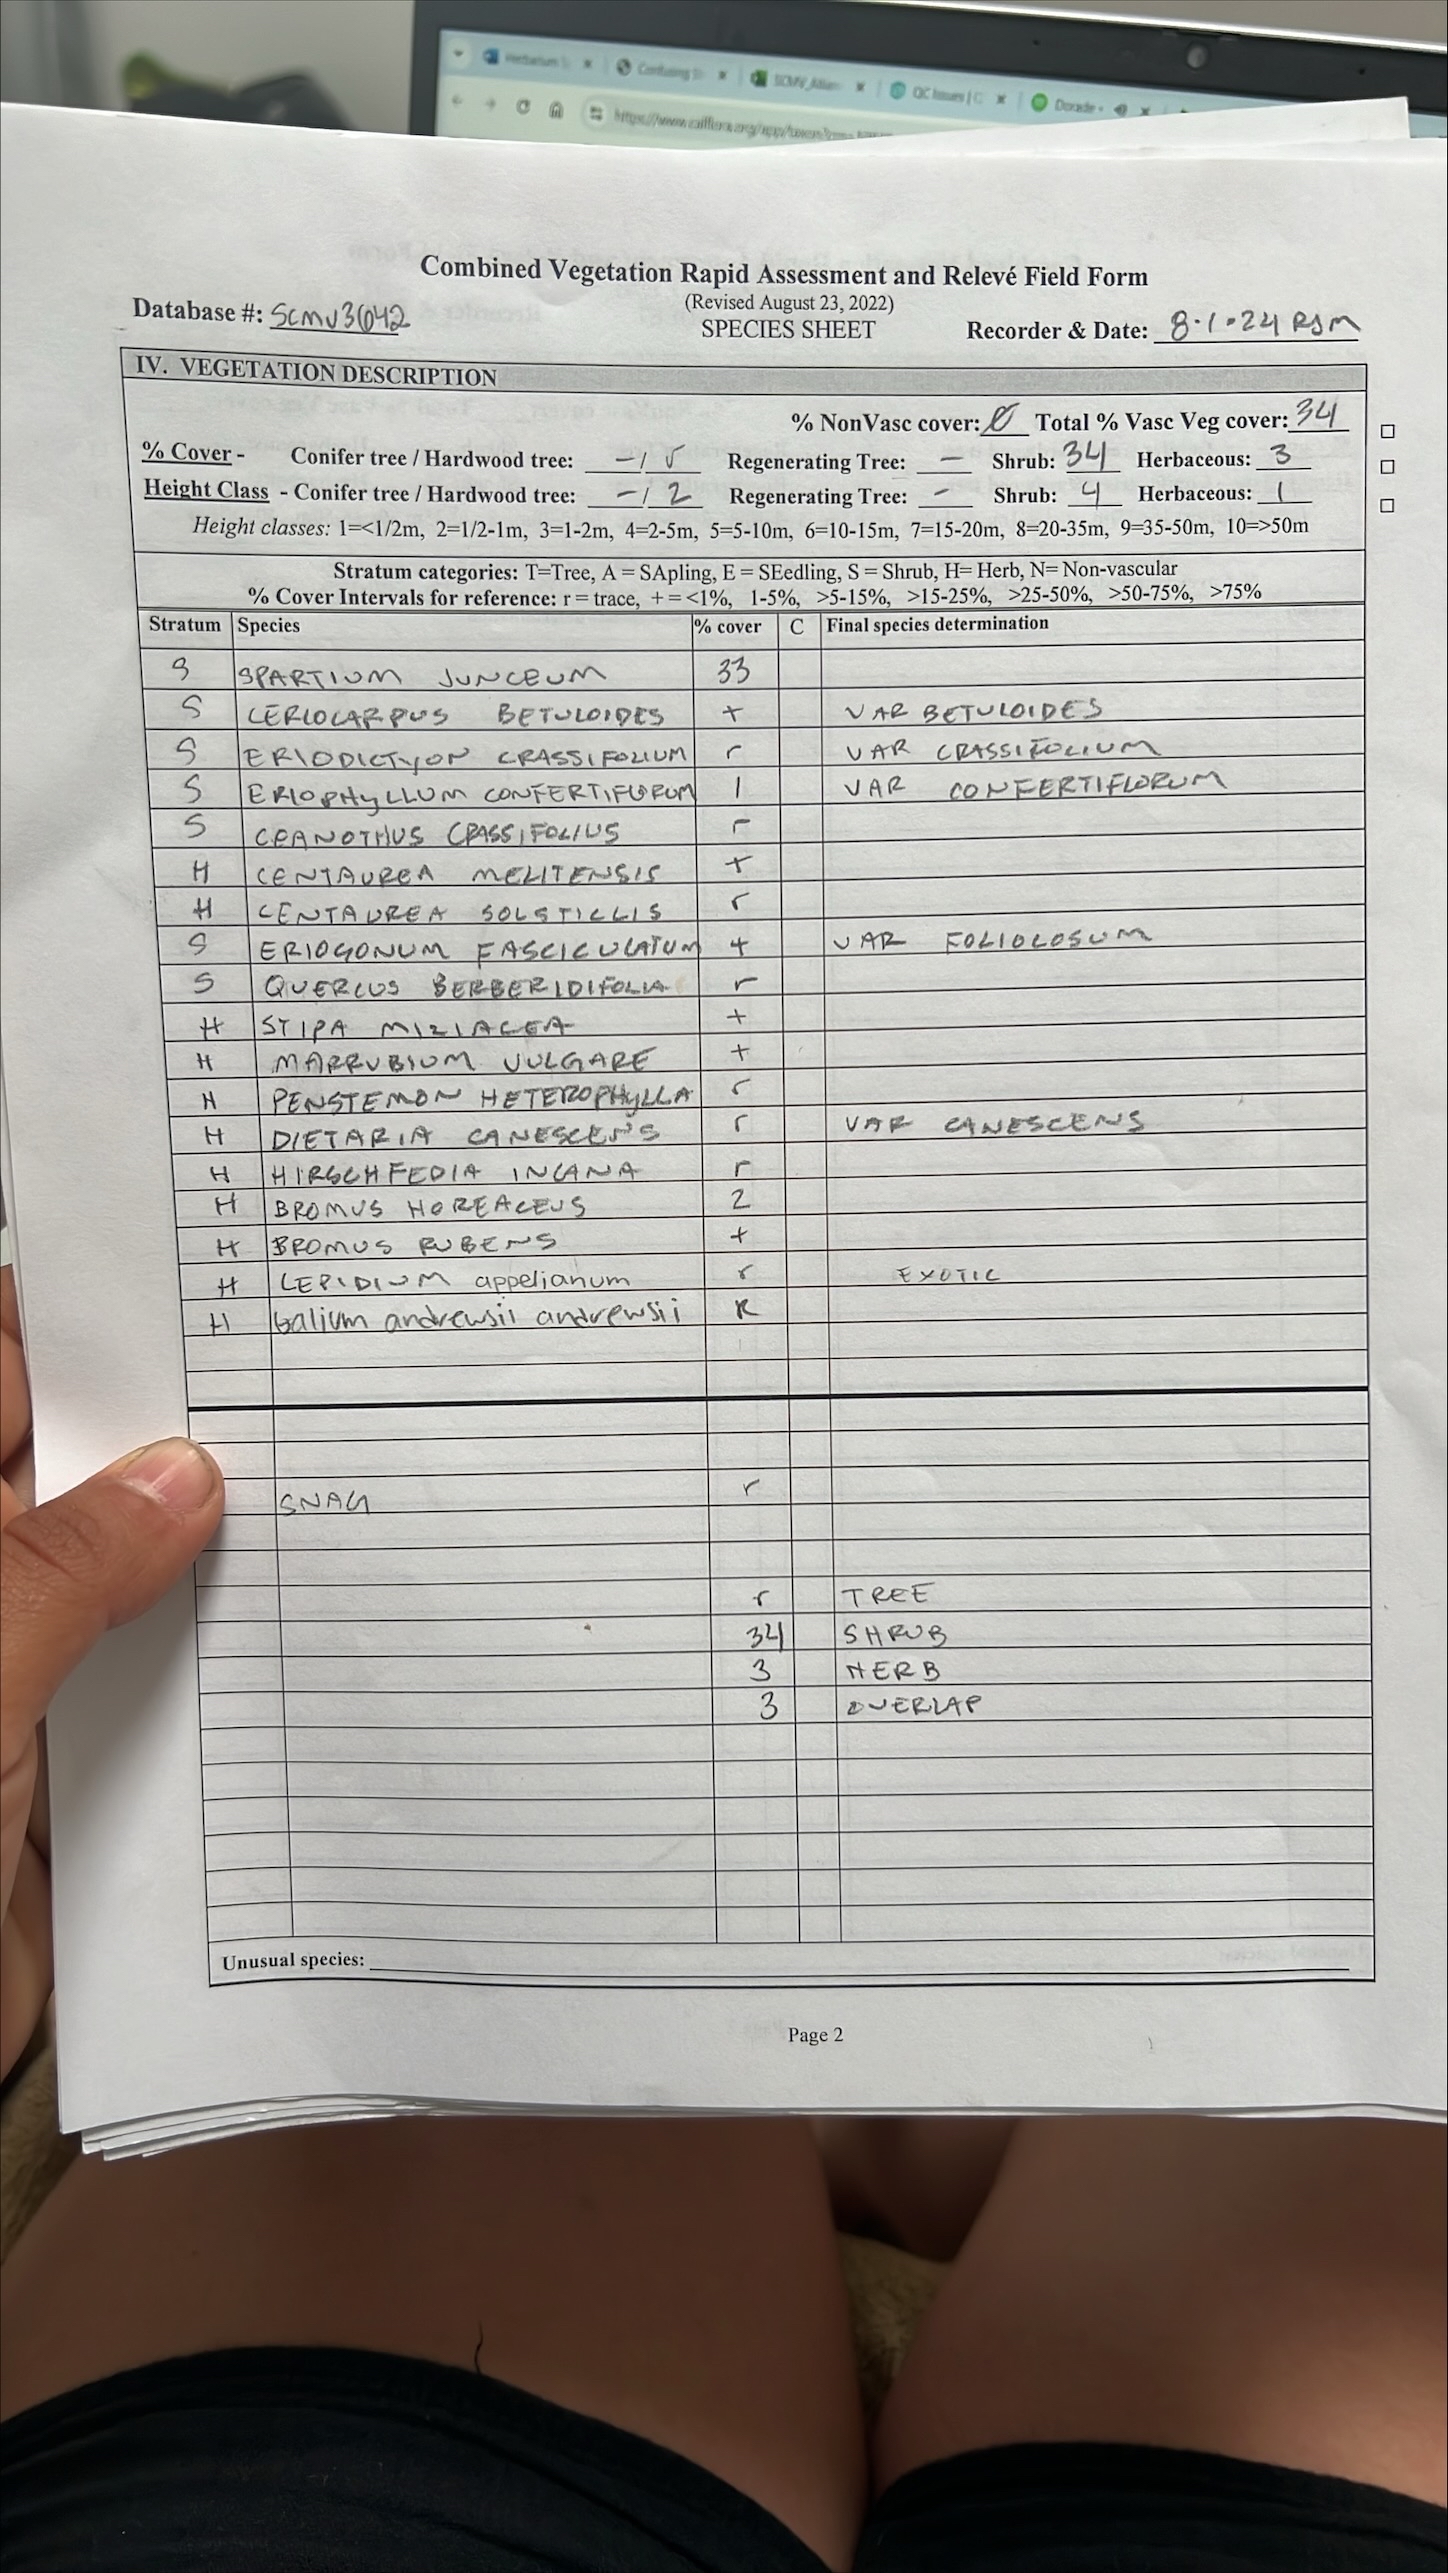 Herbarium S
Confusing S
SCMV_Allian
QC Issues | C
Dorade -
https://www.calflora.org/app/taxon?crn=
Combined Vegetation Rapid Assessment and Relevé Field Form
(Revised August 23, 2022)
Database #: SCMV3642 SPECIES SHEET Recorder & Date: 8.1.24 RJM
IV. VEGETATION DESCRIPTION
% NonVasc cover: Ø Total % Vasc Veg cover: 34
% Cover - Conifer tree / Hardwood tree: - / r Regenerating Tree: - Shrub: 34 Herbaceous: 3
Height Class - Conifer tree / Hardwood tree: - / 2 Regenerating Tree: - Shrub: 4 Herbaceous: 1
Height classes: 1=<1/2m, 2=1/2-1m, 3=1-2m, 4=2-5m, 5=5-10m, 6=10-15m, 7=15-20m, 8=20-35m, 9=35-50m, 10=>50m
Stratum categories: T=Tree, A = SApling, E = SEedling, S = Shrub, H= Herb, N= Non-vascular
% Cover Intervals for reference: r = trace, + = <1%, 1-5%, >5-15%, >15-25%, >25-50%, >50-75%, >75%
Stratum Species % cover C Final species determination
S SPARTIUM JUNCEUM 33
S CERLOCARPUS BETULOIDES + VAR BETULOIDES
S ERIODICTYON CRASSIFOLIUM r VAR CRASSIFOLIUM
S ERIOPHYLLUM CONFERTIFLORUM 1 VAR CONFERTIFLORUM
S CEANOTHUS CRASSIFOLIUS r
H CENTAUREA MELITENSIS +
H CENTAUREA SOLSTICLIS r
S ERIOGONUM FASCICULATUM + VAR FOLIOLOSUM
S QUERCUS BERBERIDIFOLIA r
H STIPA MILIACEA +
H MARRUBIUM VULGARE +
H PENSTEMON HETEROPHYLLA r
H DIETARIA CANESCENS r VAR CANESCENS
H HIRSCHFEDIA INCANA r
H BROMUS HOREACEUS 2
H BROMUS RUBENS +
H LEPIDIUM appelianum r EXOTIC
H Galium andrewsii andrewsii R
SNAG r
r TREE
34 SHRUB
3 HERB
3 OVERLAP
Unusual species:
Page 2